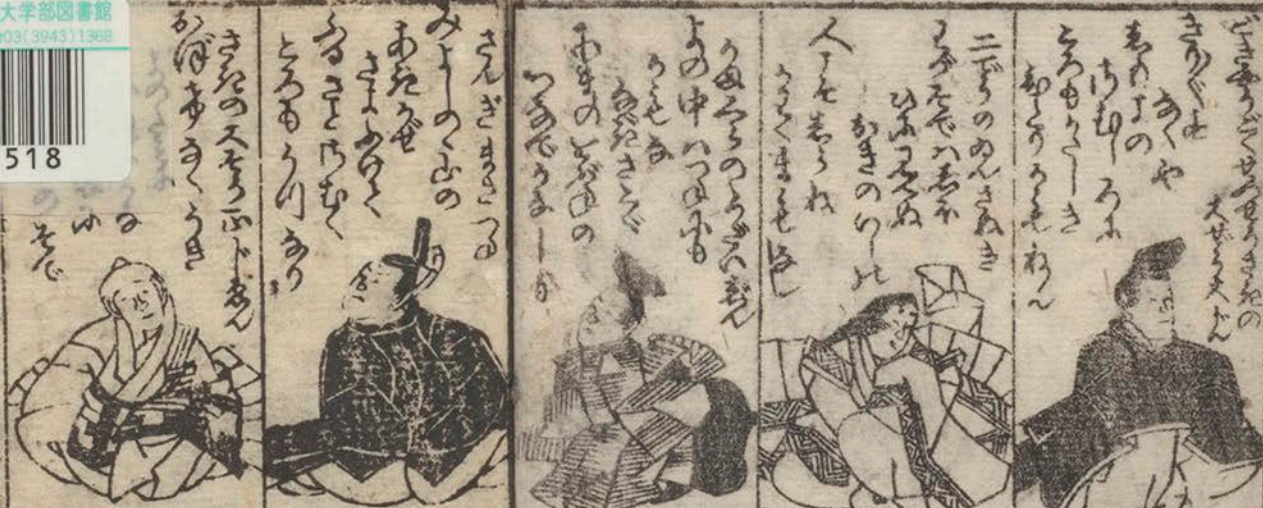 大学部図書館
03(3943)1368
518
ごきやうごくせつせうさきの
太ぜう大じん
きりぎりす
なくや
しもよの
さむしろに
ころもかたしき
ひとりかもねん
二でうのゐんさぬき
わがそでハしほ
ひに見えぬ
おきのいしの
人こそしらね
かわくまもなし
かまくらのうだいじん
よの中ハつねにも
がもな
なぎさこぐ
あまのをぶねの
つなでかなしも
さんぎまさつね
みよしのゝ山の
あきかぜ
さよふけて
ふるさとさむく
ころもうつなり
さきの大そう正じゑん
おほけなくうき
そで